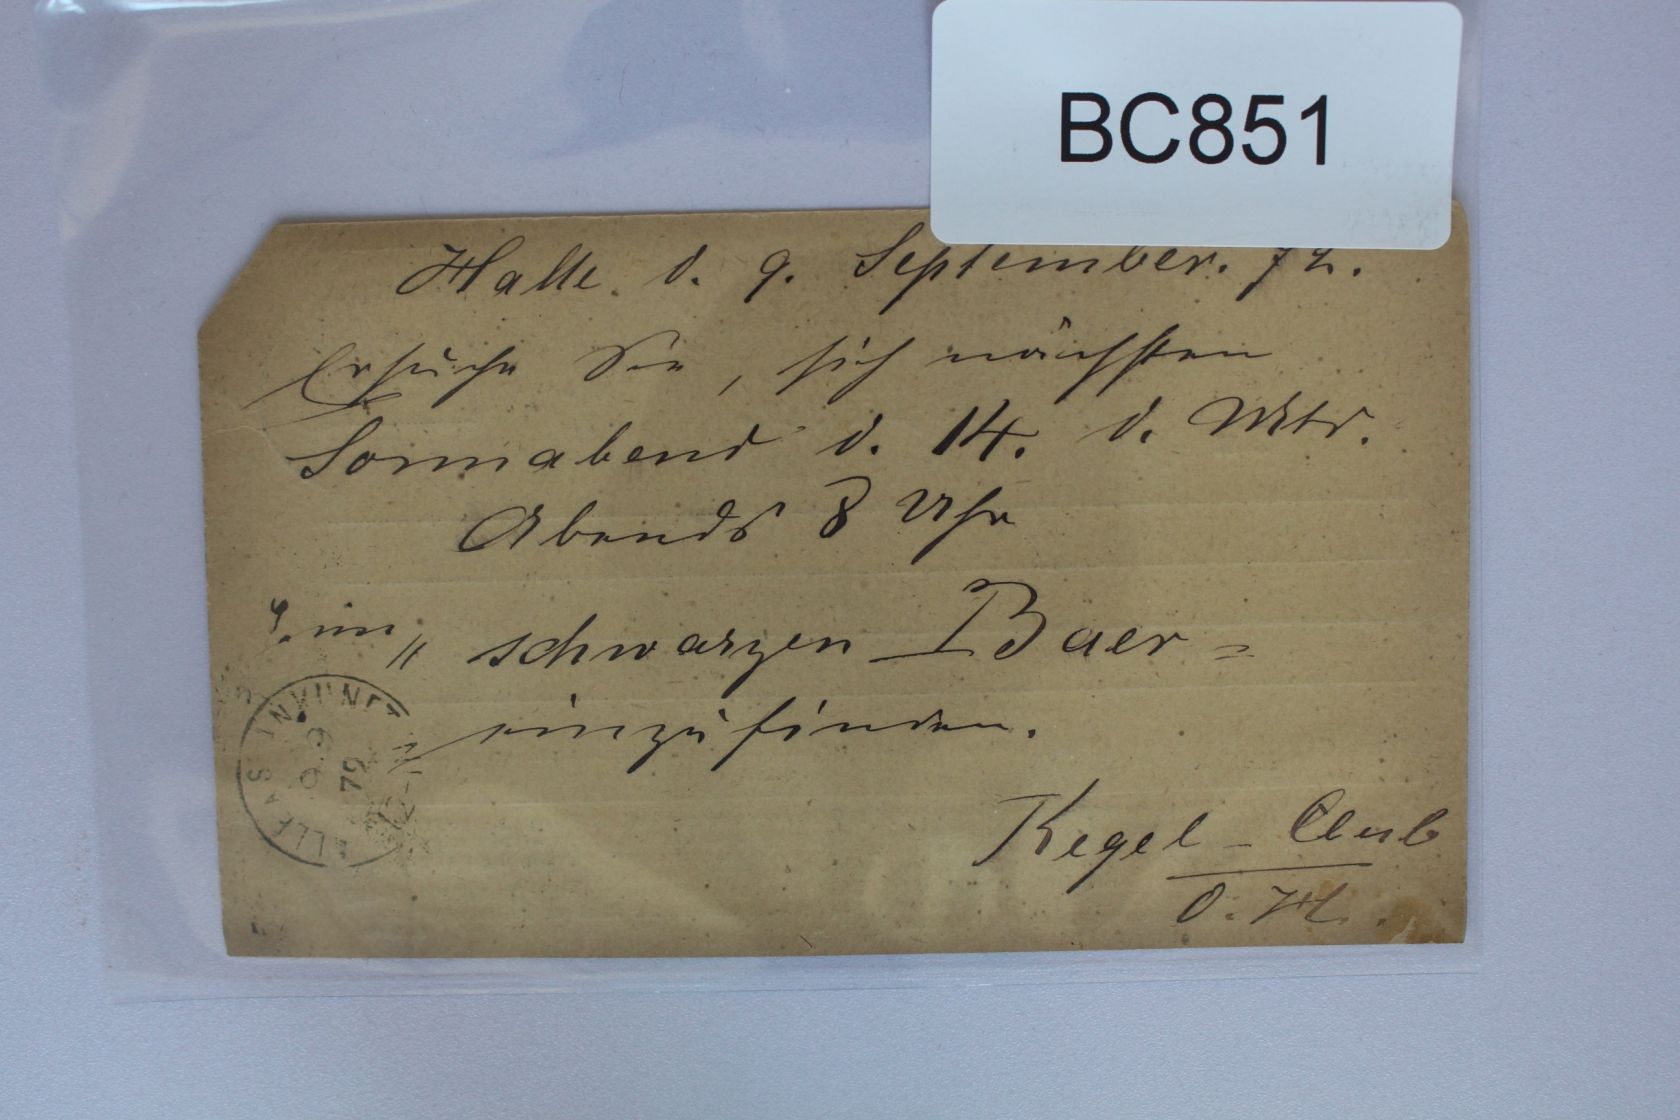 BC851
Halle d. 9. September. 72.
Ersuche Sie, sich nächsten
Sonnabend d. 14. d. Mts.
Abends 8 Uhr
im „ schwarzen Baer =
einzufinden.
Kegel - Club
d. H.
9 9
72